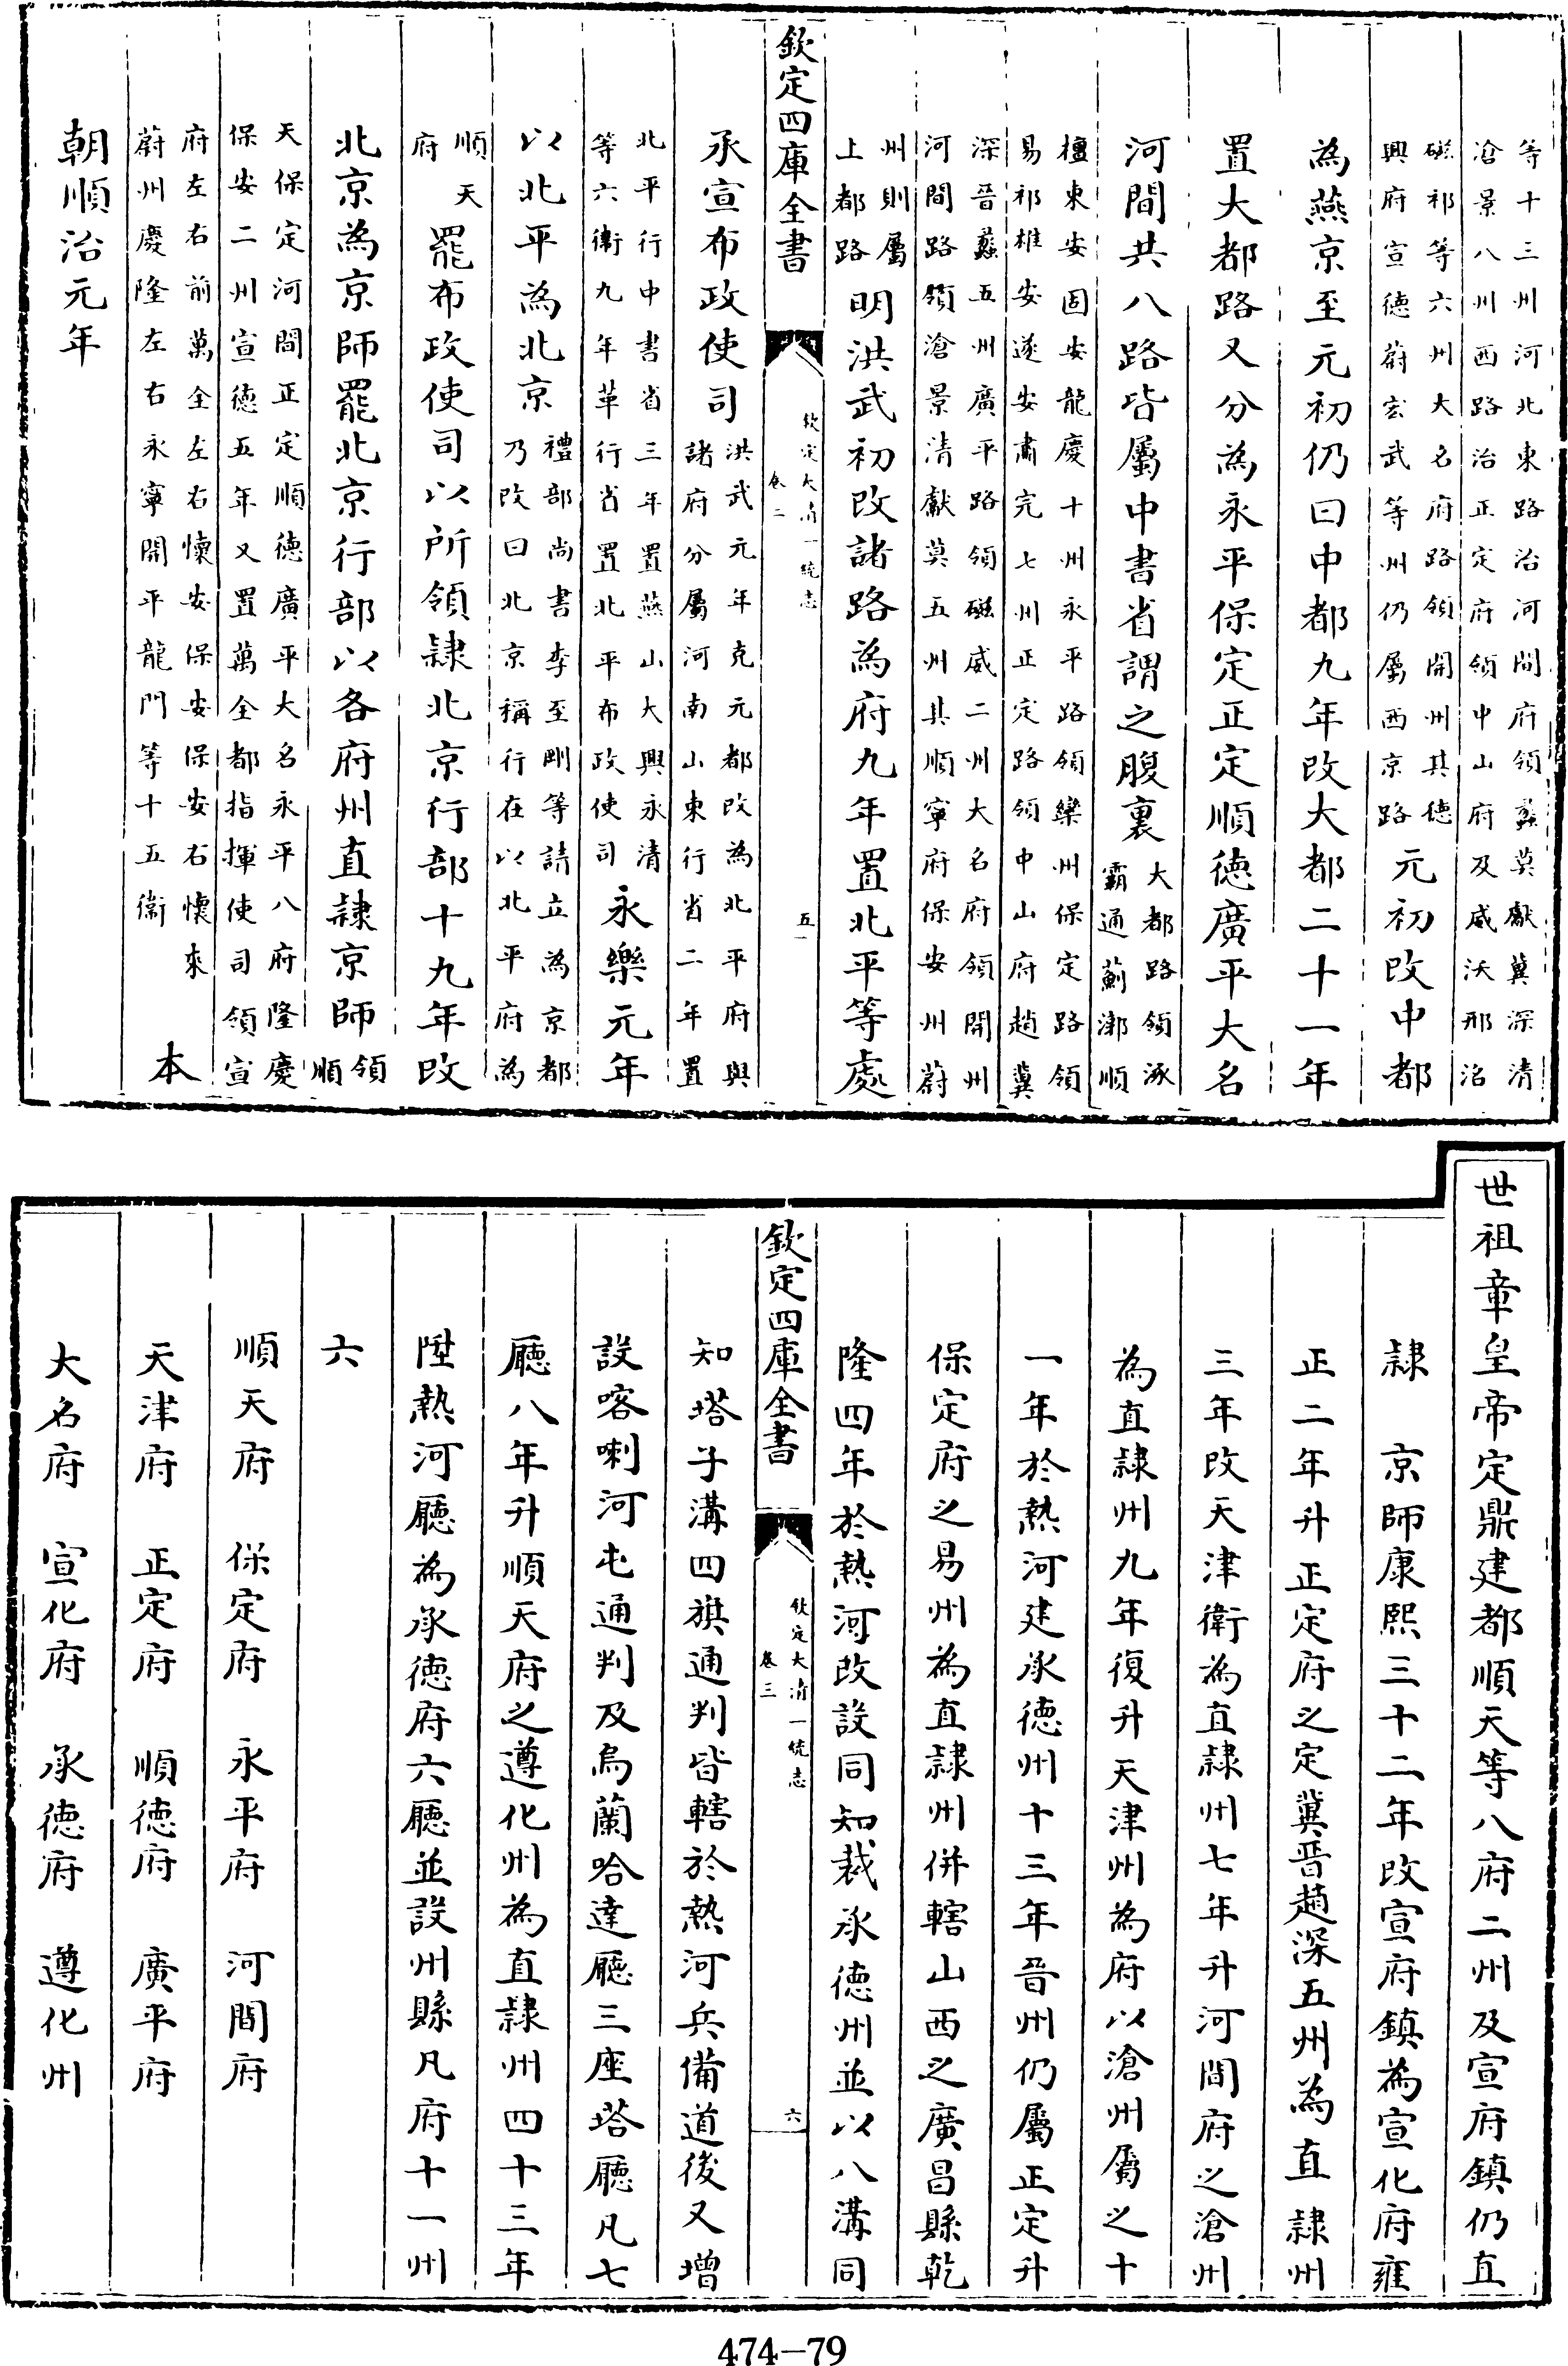 等十三州河北東路治河間府領蠡莫獻冀深清
滄景八州西路治正定府領中山府及威沃邢洺
磁祁等六州大名府路領開州其德
興府宣德蔚宏武等州仍屬西京路元初改中都
為燕京至元初仍曰中都九年改大都二十一年
置大都路又分為永平保定正定順德廣平大名
河間共八路皆屬中書省謂之腹裏大都路領涿
霸通薊漷順
檀東安固安龍慶十州永平路領欒州保定路領
易祁雄安遂安肅完七州正定路領中山府趙冀
深晉蠡五州廣平路領磁威二州大名府領開州
河間路領滄景清獻莫五州其順寧府保安州蔚
州則屬
上都路明洪武初改諸路為府九年置北平等處
欽定四庫全書
欽定大清一統志
卷二
五
承宣布政使司洪武元年克元都改為北平府與
諸府分屬河南山東行省二年置
北平行中書省三年置燕山大興永清
等六衛九年革行省置北平布政使司永樂元年
以北平為北京禮部尚書李至剛等請立為京都
乃改曰北京稱行在以北平府為
順天
府罷布政使司以所領隸北京行部十九年改
北京為京師罷北京行部以各府州直隸京師領
順
天保定河間正定順德廣平大名永平八府隆慶
保安二州宣德五年又置萬全都指揮使司領宣
府左右前萬全左右懷安保安保安右懷來
蔚州慶隆左右永寧開平龍門等十五衛本
朝順治元年
世祖章皇帝定鼎建都順天等八府二州及宣府鎮仍直
隸京師康熙三十二年改宣府鎮為宣化府雍
正二年升正定府之定冀晉趙深五州為直隸州
三年改天津衛為直隸州七年升河間府之滄州
為直隸州九年復升天津州為府以滄州屬之十
一年於熱河建承德州十三年晉州仍屬正定升
保定府之易州為直隸州併轄山西之廣昌縣乾
隆四年於熱河改設同知裁承德州並以八溝同
欽定四庫全書
欽定大清一統志
卷三
六
知塔子溝四旗通判皆轄於熱河兵備道後又增
設喀喇河屯通判及烏蘭哈達廳三座塔廳凡七
廳八年升順天府之遵化州為直隸州四十三年
陞熱河廳為承德府六廳並設州縣凡府十一州
六
順天府　保定府　永平府　河間府
天津府　正定府　順德府　廣平府
大名府　宣化府　承德府　遵化州
474-79